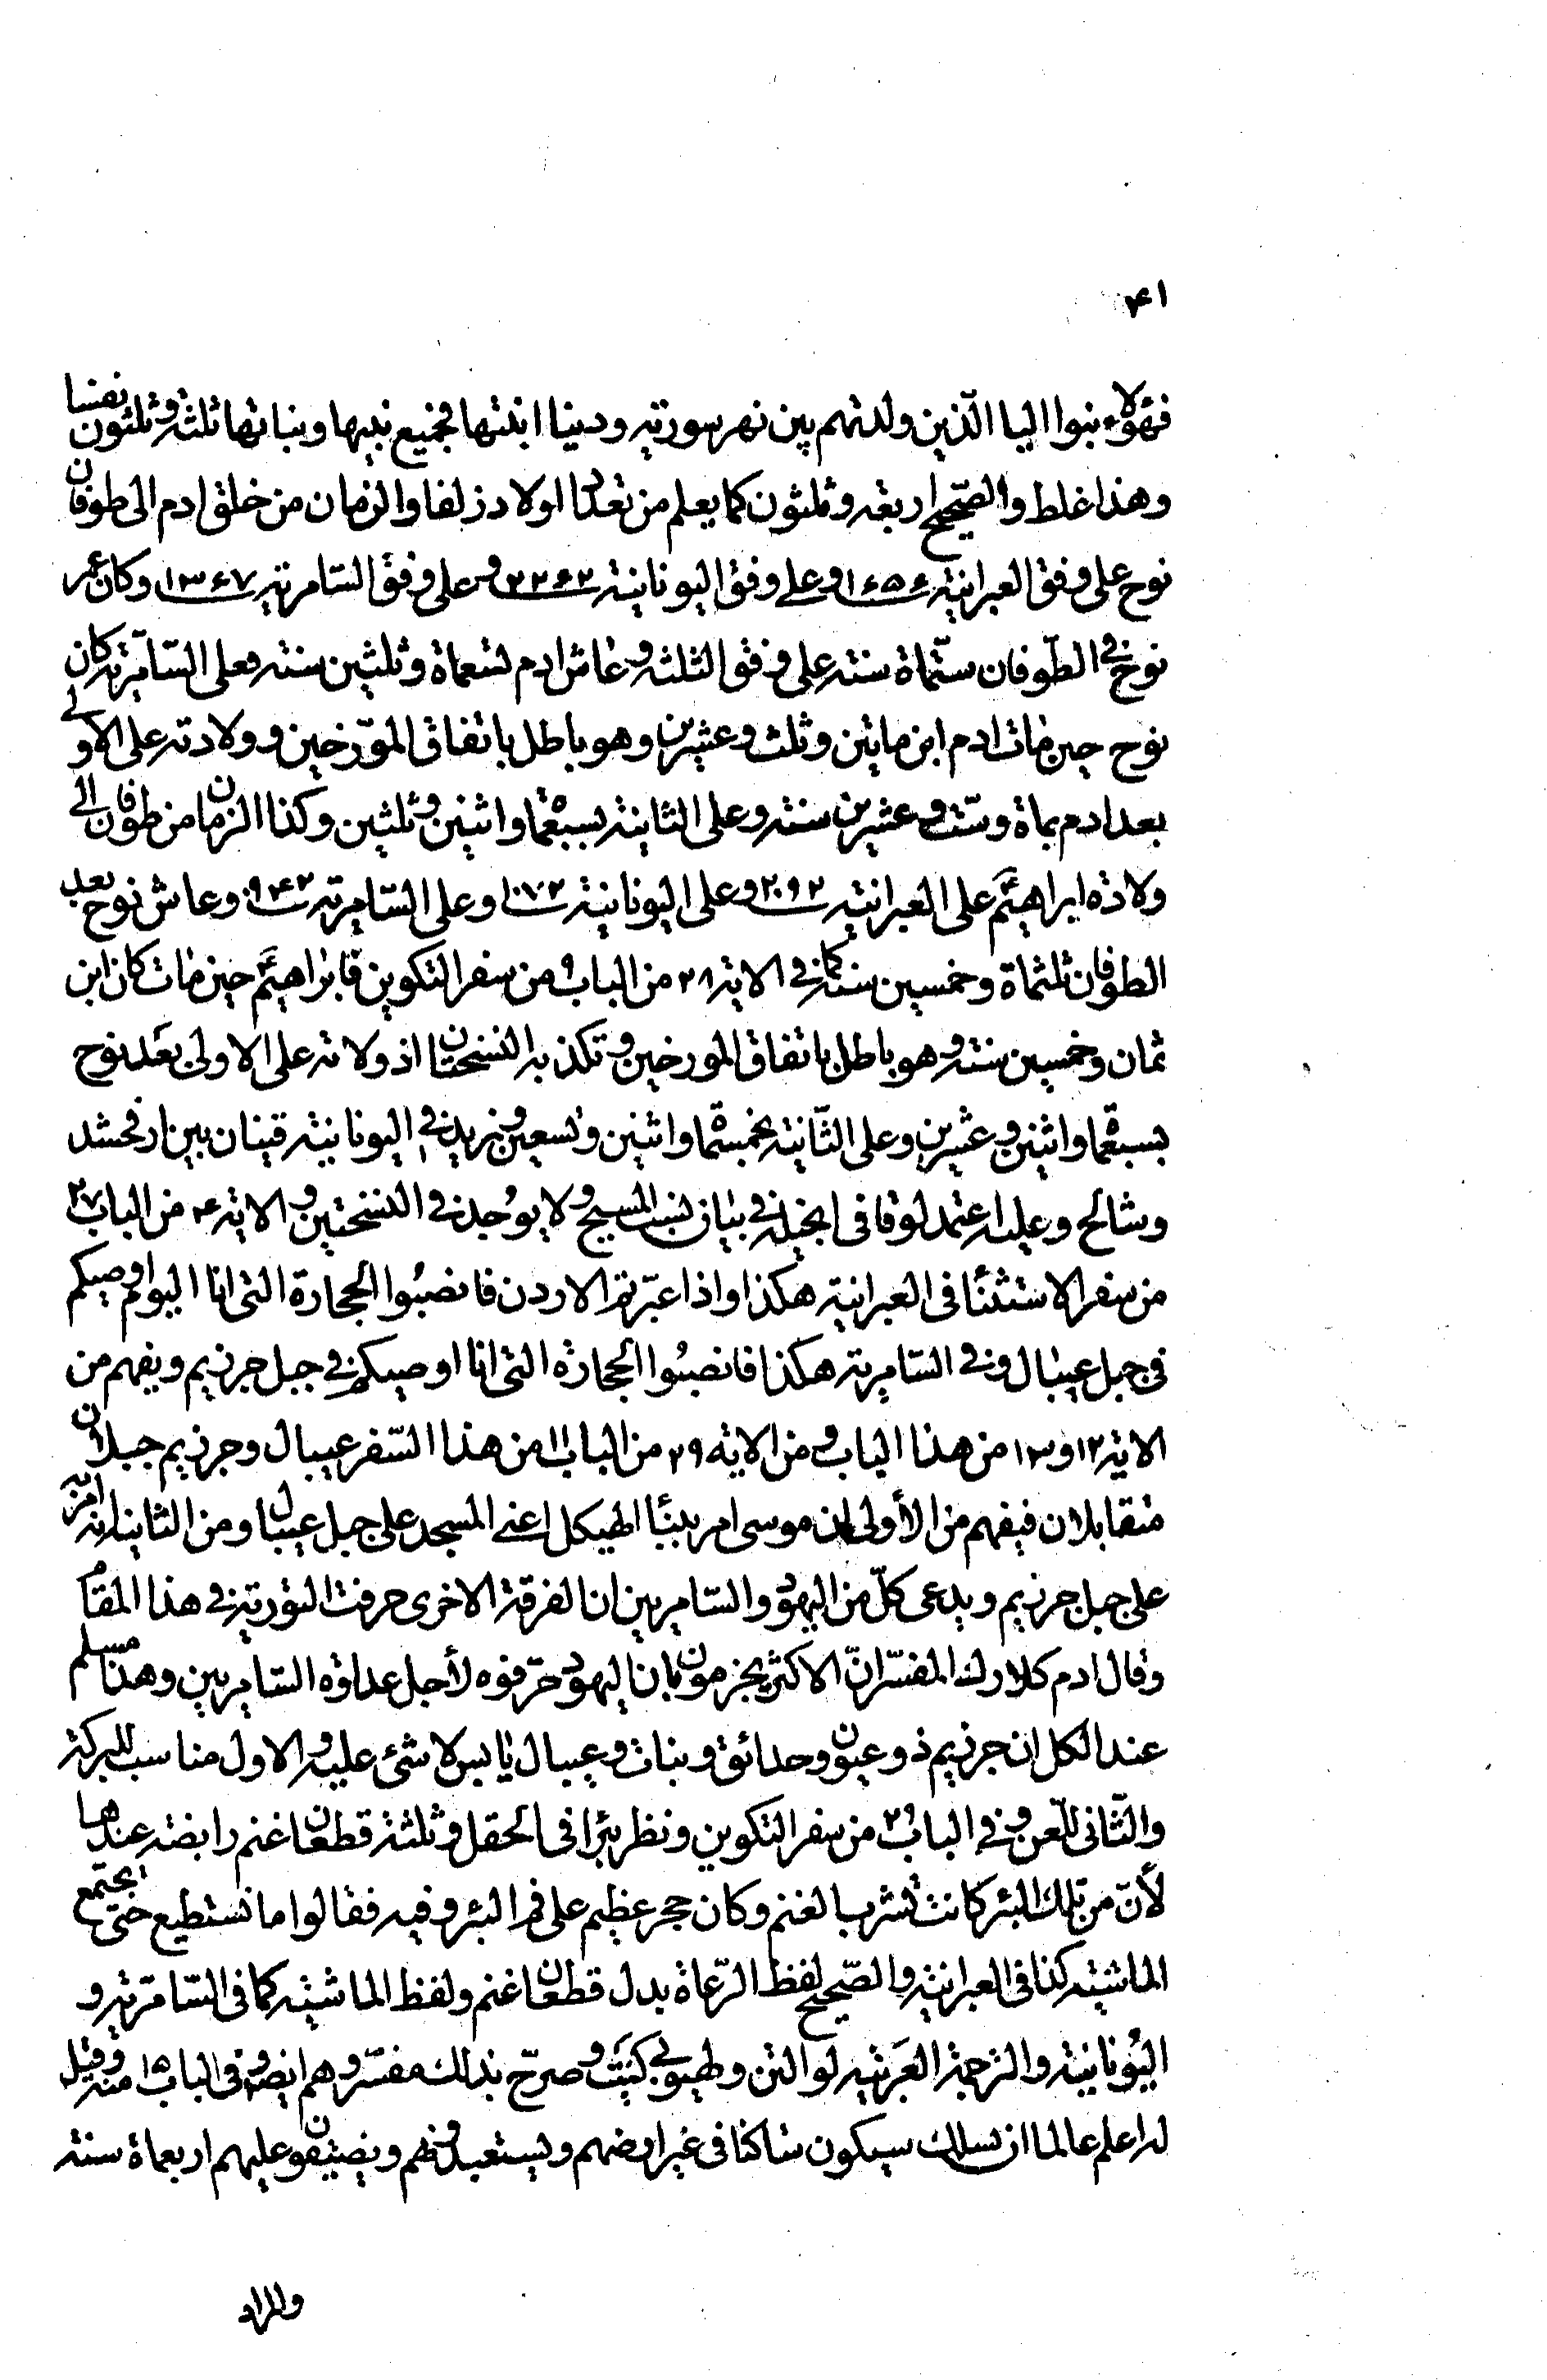 ۴۱
فهؤلاء بنوا اليا الذين ولدتهم بين نهر سورته ودينا ابنتها فجميع بنيها وبناتها ثلثة وثلثون نفسا
وهذا غلط والصحيح اربعة وثلثون كما يعلم من تعداد اولاد زلفا والزمان من خلق ادم الى طوفان
نوح على وفق العبرانية ۱۶۵۶ وعلى وفق اليونانية ۲۲۶۲ وعلى وفق السامرته ۱۳۰۷ وكان عمر
نوح في الطوفان ستماة سنة على وفق الثلثة وعاش ادم تسعماة وثلثين سنة فعلى السامرته كان
نوح حين مات ادم ابن مايتين وثلث وعشرين وهو باطل باتفاق المورخين وولادته على الاولى
بعد ادم بماة وست وعشرين سنة وعلى الثانية بسبعماة واثنين وثلثين وكذا الزمان من طوفان الى
ولاده ابراهيم على العبرانية ۲۹۲ وعلى اليونانية ۱۰۷۲ وعلى السامرته ۹۴۲ وعاش نوح بعد
الطوفان ثلثماة وخمسين سنة كما في الاية ۲۸ من الباب ۹ من سفر التكوين فابراهيم حين مات كان ابن
ثمان وخمسين سنة وهو باطل باتفاق المورخين وتكذبه النسختان اذ ولاته على الاولى بعد نوح
بسبعماة واثنين وعشرين وعلى الثانية بخمسماة واثنين وتسعين وزيد في اليونانية قينان بين ارفحشد
وشالح وعليه اعتمد لوقا في انجيله في بيان نسب المسيح ولا يوجد في النسختين والاية ۴ من الباب ۲۷
من سفر الاستثنا في العبرانية هكذا واذا عبرتم الاردن فانصبوا الحجارة التى انا اليوم اوصيكم
في جبل عيبال وفي السامرته هكذا فانصبوا الحجارة التى انا اوصيكم في جبل جرزيم ويفهم من
الاية ۱۲ و۱۳ من هذا الباب ومن الاية ۲۹ من الباب ۱۱ من هذا السفر عيبال وجرزيم جبلان
متقابلان فيفهم من الأولى ان موسى امر ببنا الهيكل اعنى المسجد على جبل عيبال ومن الثانية انه امر به
على جبل جرزيم ويدعى كل من اليهود والسامريين ان الفرقة الاخرى حرفت التورية في هذا المقام
وقال ادم كلارك المفسر ان الاكثر يجزمون بان اليهود حرفوه لأجل عداوة السامريين وهذا مسلم
عند الكل ان جرزيم ذو عيون وحدائق ونبات وعيبال يابس لا شئ عليه والاول مناسب للبركة
والثانى للعن وفي الباب ۲۹ من سفر التكوين ونظر بئرا في الحقل وثلثة قطعان اغنم رابضة عندها
لأن من تلك البئر كانت تشرب الغنم وكان حجر عظيم على فم البئر وفيه فقالوا ما نستطيع حتى يجتمع
الماشية كذا في العبرانية والصحيح لفظ الرعاة بدل قطعان اغنم ولفظ الماشية كما في السامرته و
اليونانية والترجمة العربية لوالتن وطهيوبى كينت وصرح بذلك مفسروهم ايضا وفي الباب ۱۵ منه وقيل
له اعلم عالما ان نسلك سيكون ساكنا في غير ارضهم ويستعبدونهم ويضيقون عليهم اربعماة سنة
والمراد